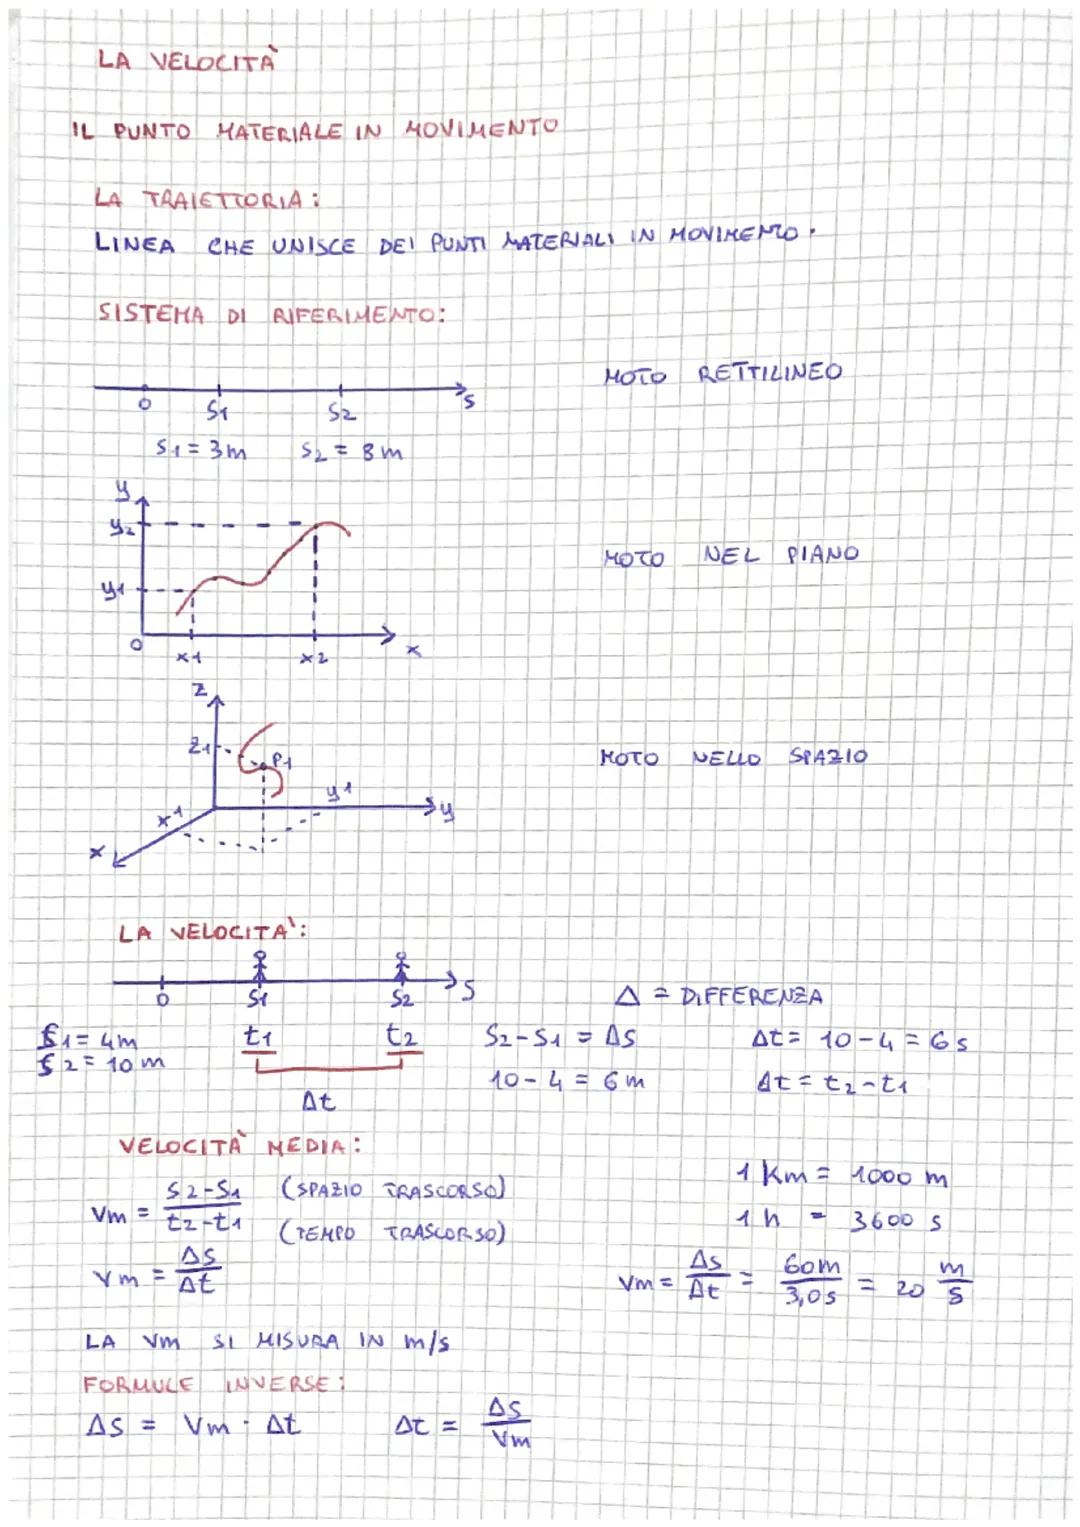 LA VELOCITÀ
IL PUNTO MATERIALE IN MOVIMENTO
LA TRAIETTORIA:
LINEA CHE UNISCE DEI PUNTI MATERIALI IN MOVIMENTO.
SISTEMA DI RIFERIMENTO:
MOTO RETTILINEO
0 S1 S2 S
S1 = 3m S2 = 8m
y
y2
y1
0 x1 x2 x
MOTO NEL PIANO
z
z1 P1
x1 y1 y
x
MOTO NELLO SPAZIO
LA VELOCITA':
0 S1 S2 S
Δ = DIFFERENZA
S1 = 4m t1 t2 S2-S1 = ΔS Δt = 10-4 = 6s
S2 = 10m 10-4 = 6m Δt = t2-t1
Δt
VELOCITÀ MEDIA:
Vm = S2-S1 / t2-t1 (SPAZIO TRASCORSO)
(TEMPO TRASCORSO)
1 Km = 1000 m
1 h = 3600 s
Vm = ΔS / Δt
Vm = ΔS / Δt = 60m / 3,0s = 20 m/s
LA Vm SI MISURA IN m/s
FORMULE INVERSE:
ΔS = Vm · Δt Δt = ΔS / Vm